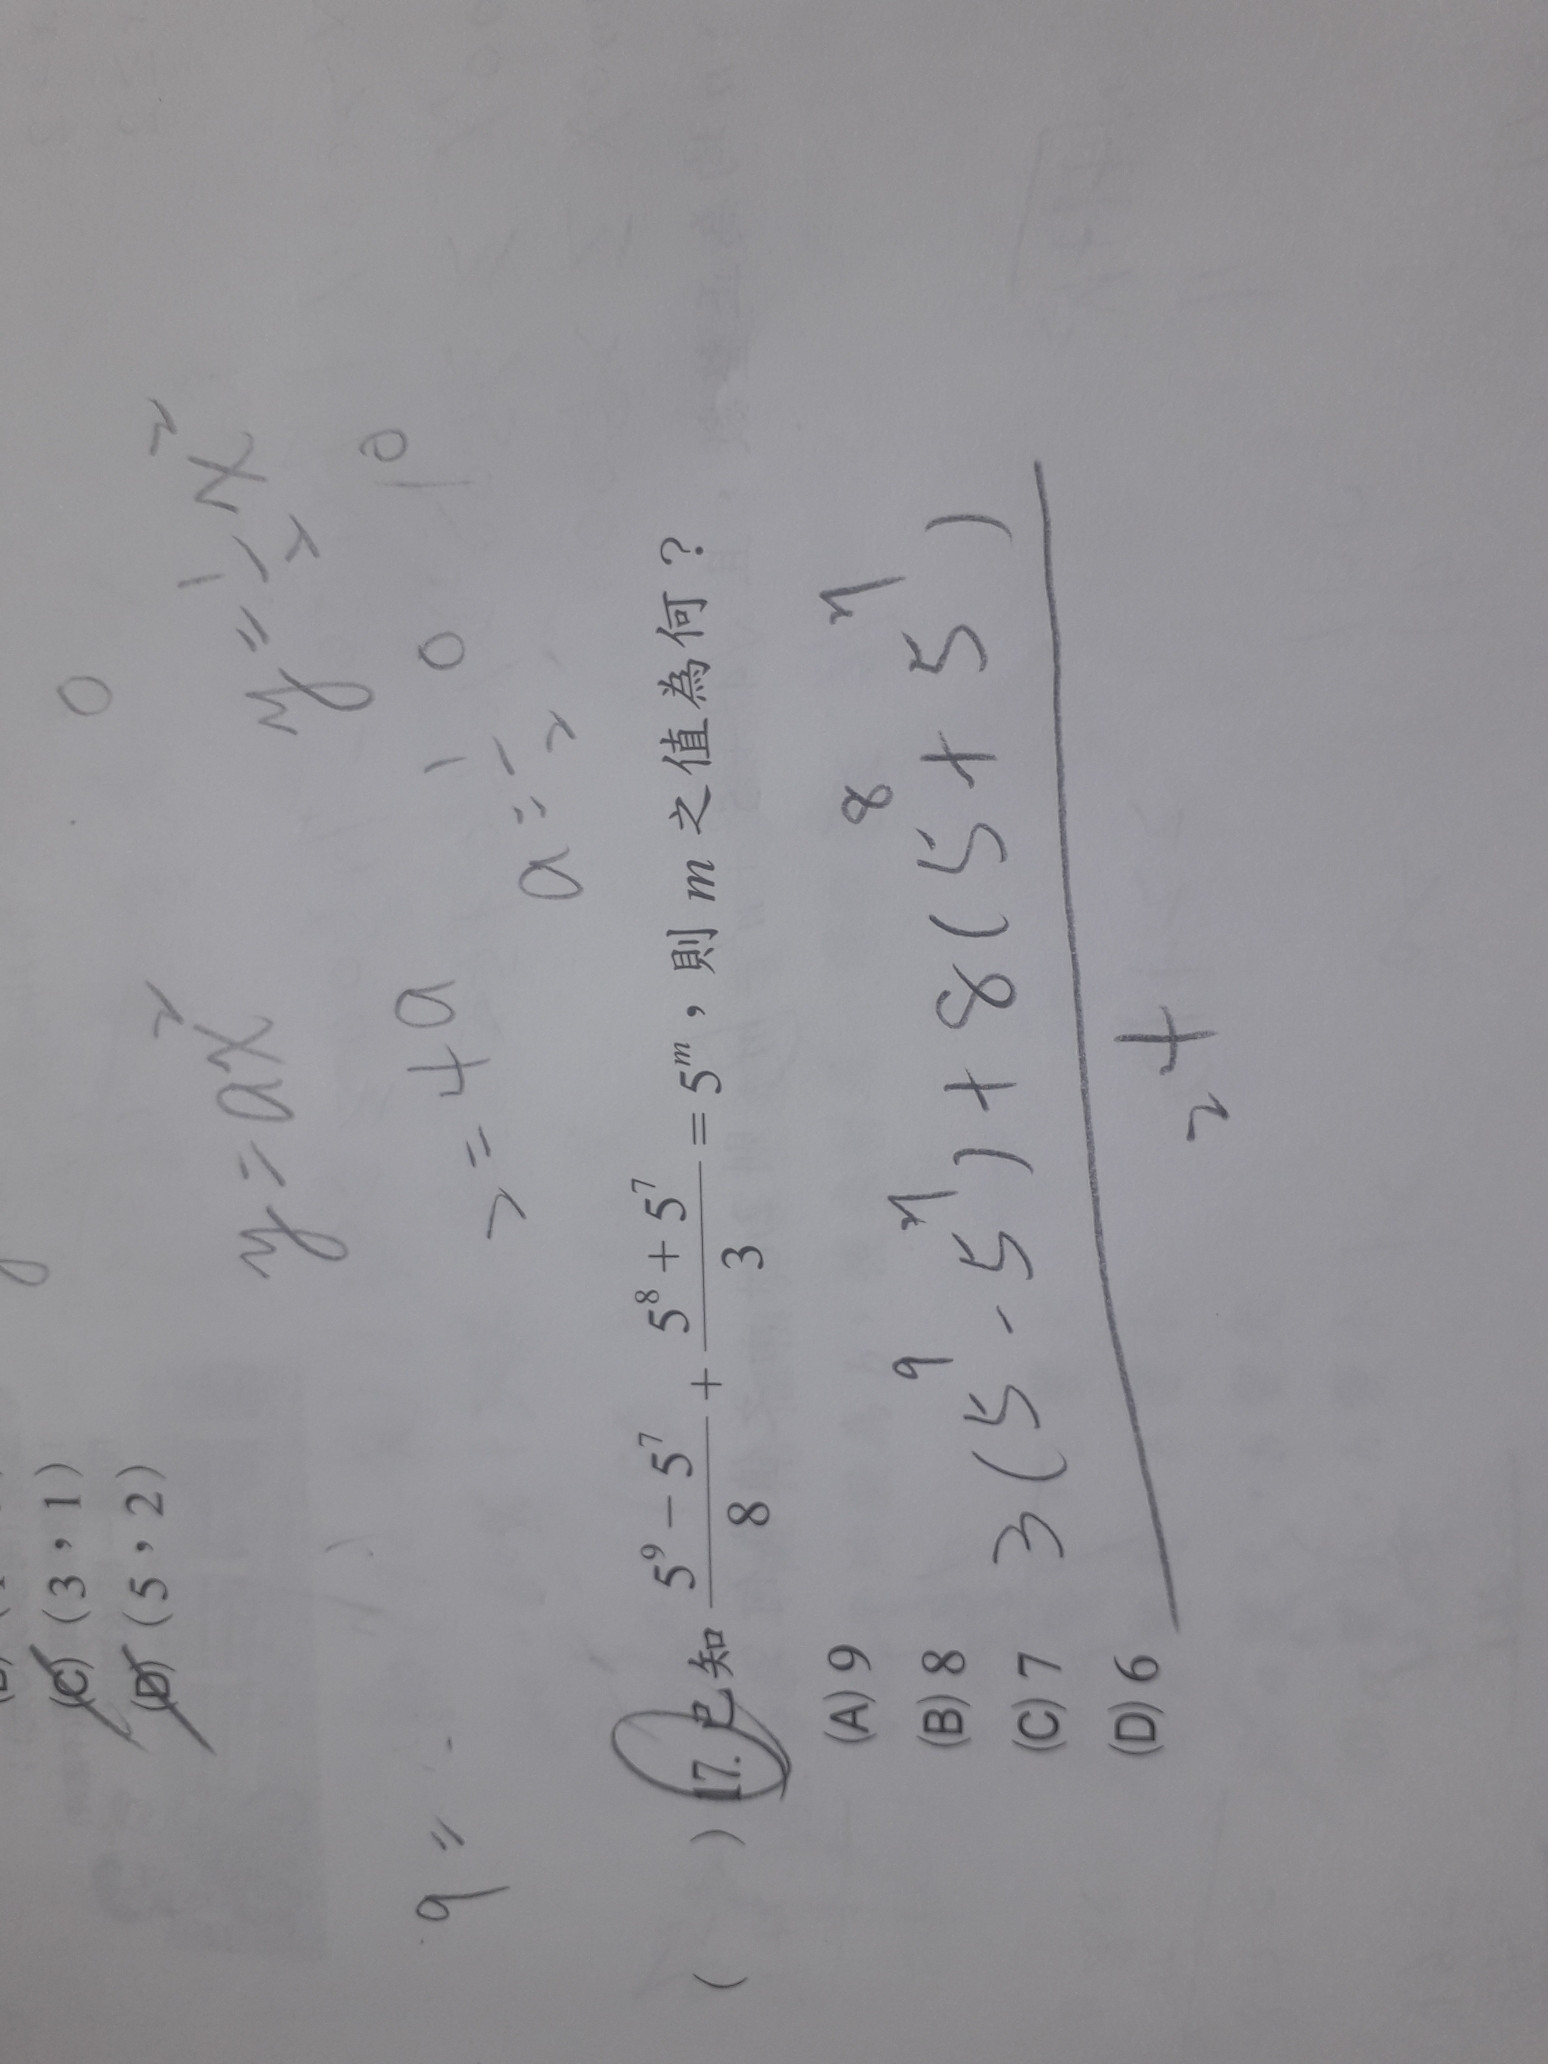 (C) (3，1)
(D) (5，2)
0
y = ax²
y = 1/2 x²
2 = 4a
0
10
a = 1/2
9 =
( ) 17. 已知 (5⁹ − 5⁷)/8 + (5⁸ + 5⁷)/3 = 5ᵐ，則 m 之值為何？
(A) 9
(B) 8
(C) 7
(D) 6
3(5⁹ - 5⁷) + 8(5⁸ + 5⁷)
24